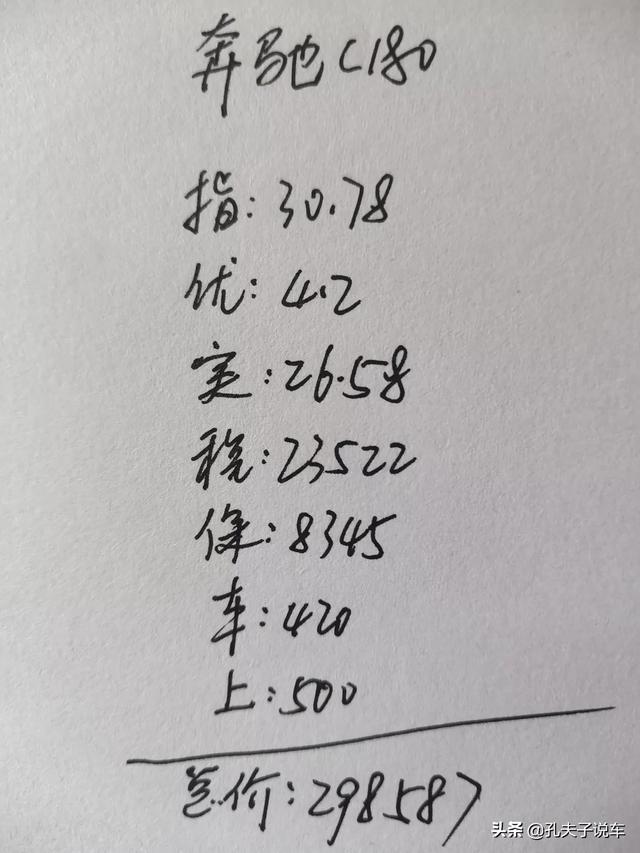 奔驰C180
指:30.78
优:4.2
实:26.58
税:23522
保:8345
车:420
上:500
总价:298587
头条 @孔夫子说车